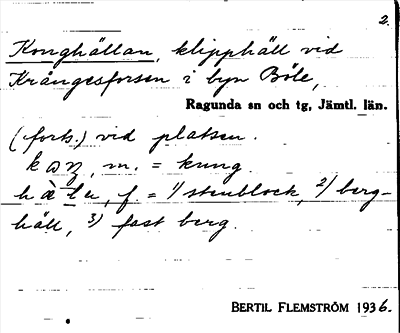 2.
Konghällan, klipphäll vid
Krångesforsen i byn Böle,
Ragunda sn och tg, Jämtl. län.
(forts.) vid platsen.
m. = kung.
f. = 1) stenblock, 2) berg-
häll, 3) fast berg.
BERTIL FLEMSTRÖM 1936.